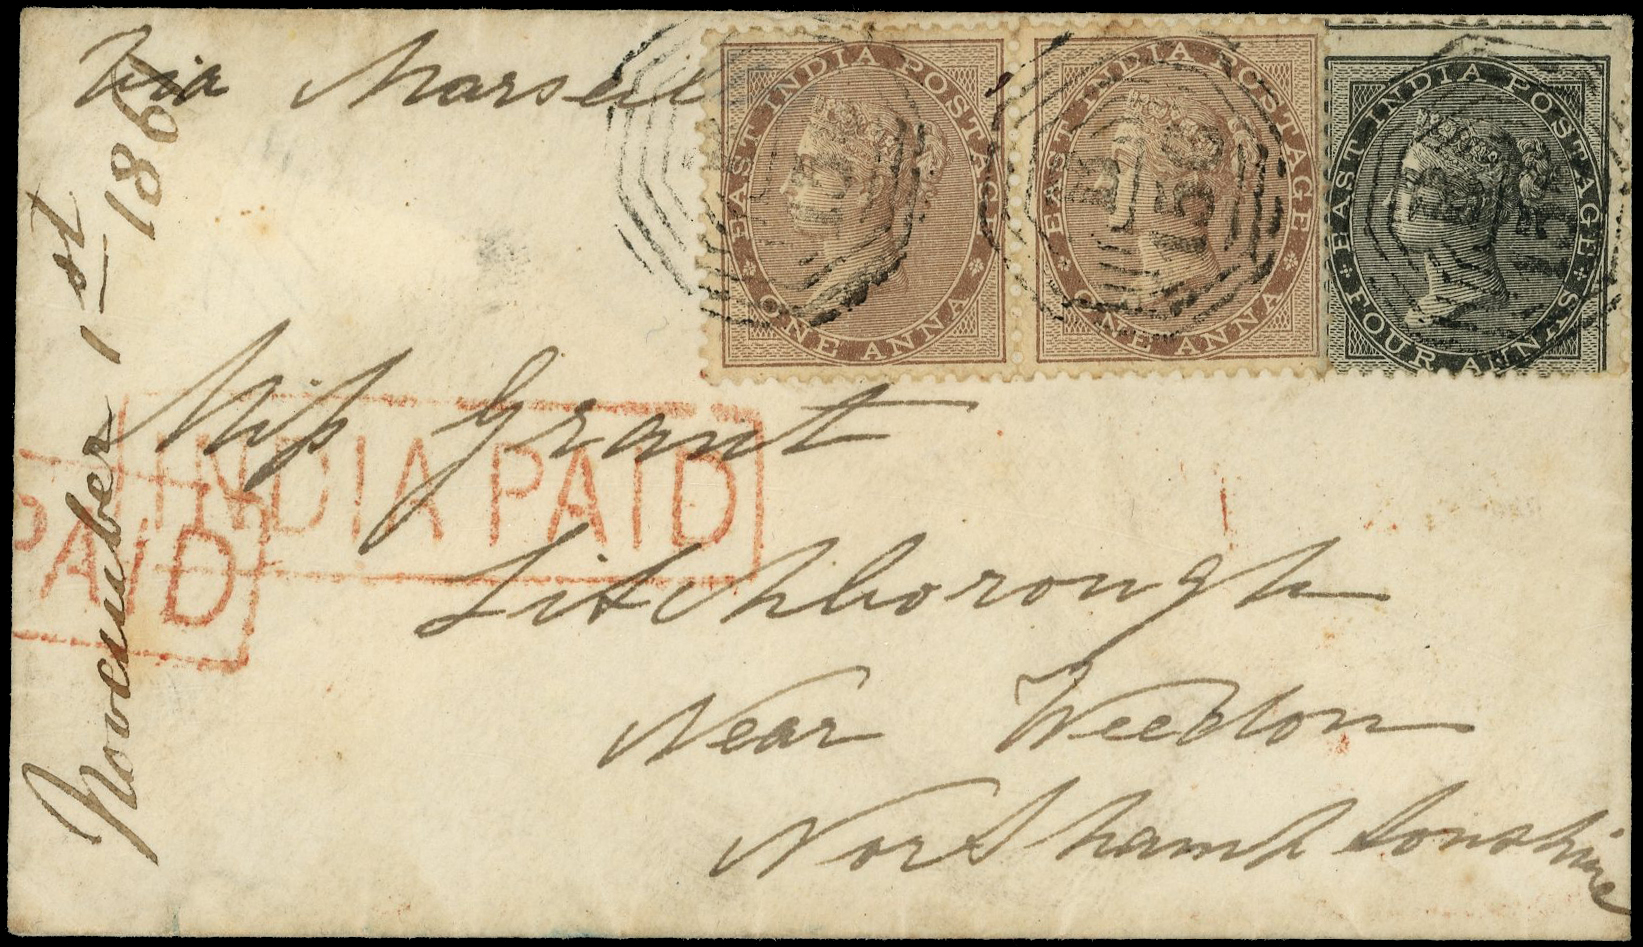 Via Marseil
EAST INDIA POSTAGE
ONE ANNA
EAST INDIA POSTAGE
ONE ANNA
B
156
EAST INDIA POSTAGE
FOUR ANNAS
November 1st
Miss Grant
INDIA PAID
PAID
Litchborough
Near Weedon
Northamptonshire